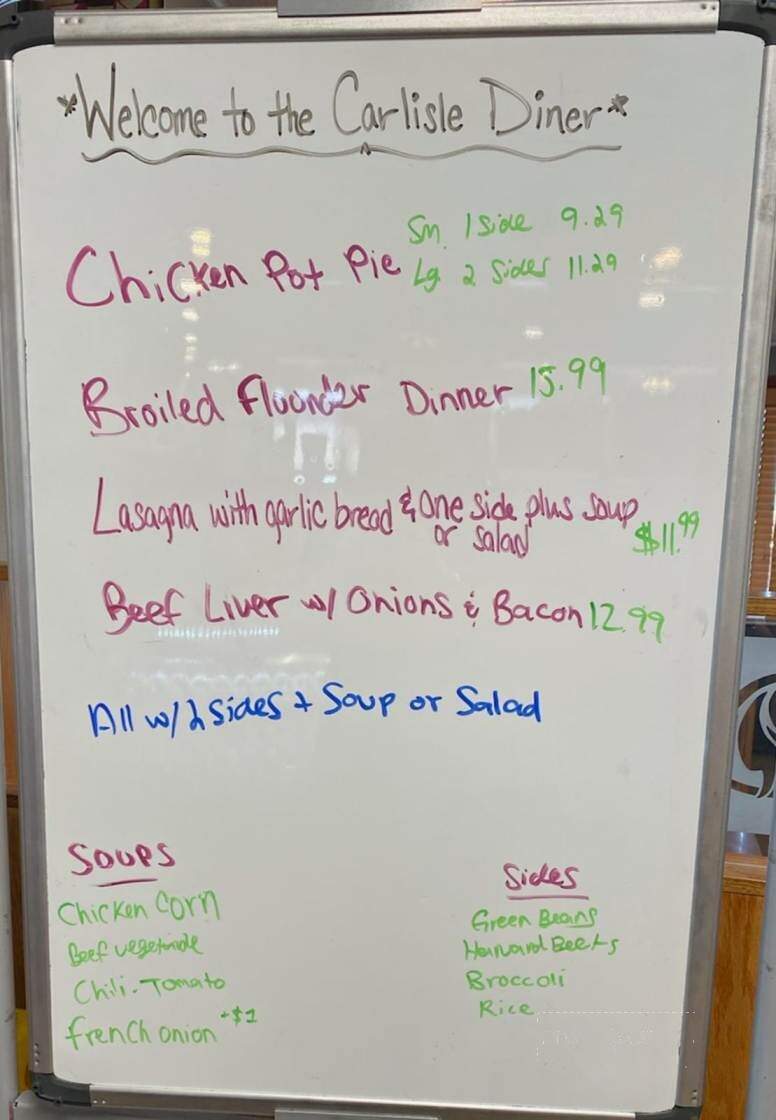 *Welcome to the Carlisle Diner*
Chicken Pot Pie
Sm. 1 Side 9.29
Lg 2 Sides 11.29
Broiled Flounder Dinner 15.99
Lasagna with garlic bread & one side plus soup
or salad $11.99
Beef Liver w/ Onions & Bacon 12.99
All w/ 2 Sides + Soup or Salad
Soups
Chicken Corn
Beef vegetable
Chili-Tomato
french onion +$1
Sides
Green Beans
Harvard Beets
Broccoli
Rice